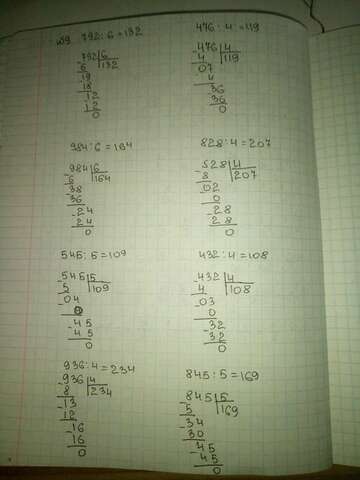 №9 792:6=132
792|6
-6 |132
19
-18
12
-12
0
476:4=119
-476|4
4 |119
07
-4
36
-36
0
984:6=164
984|6
-6 |164
-38
36
-24
24
0
828:4=207
-828|4
8 |207
-02
0
-28
28
0
545:5=109
-545|5
5 |109
-04
0
-45
45
0
432:4=108
-432|4
4 |108
-03
0
-32
32
0
936:4=234
-936|4
8 |234
-13
12
-16
16
0
845:5=169
-845|5
5 |169
-34
30
-45
45
0